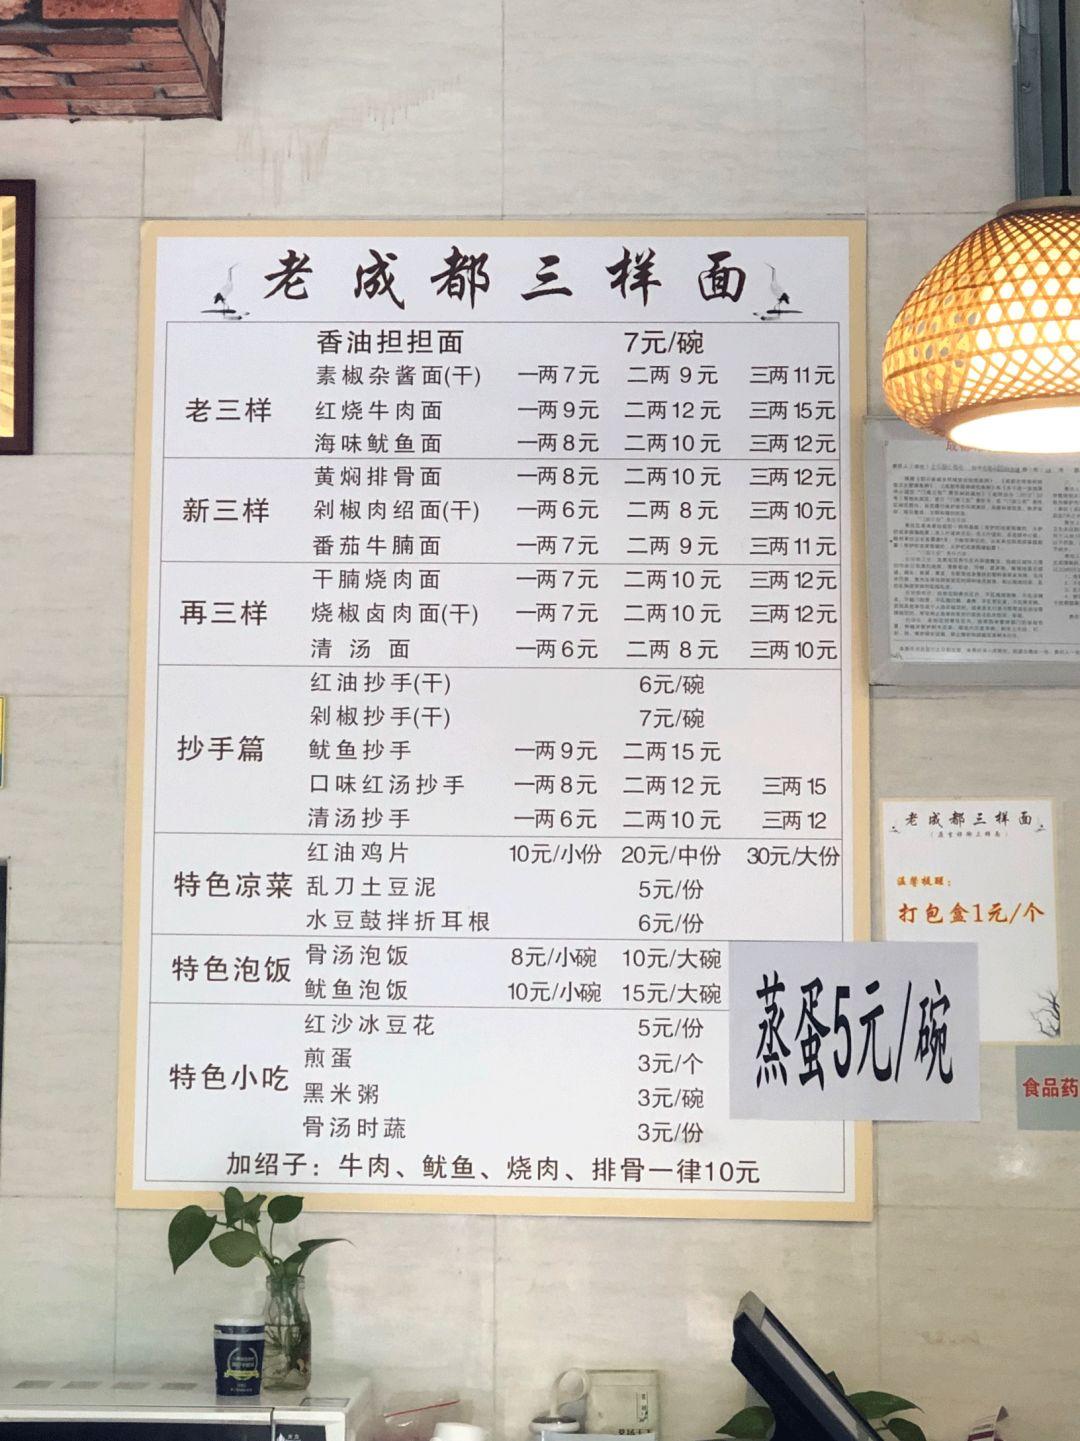 老成都三样面
香油担担面 7元/碗
老三样
素椒杂酱面(干) 一两7元 二两9元 三两11元
红烧牛肉面 一两9元 二两12元 三两15元
海味鱿鱼面 一两8元 二两10元 三两12元
新三样
黄焖排骨面 一两8元 二两10元 三两12元
剁椒肉绍面(干) 一两6元 二两8元 三两10元
番茄牛腩面 一两7元 二两9元 三两11元
再三样
干腩烧肉面 一两7元 二两10元 三两12元
烧椒卤肉面(干) 一两7元 二两10元 三两12元
清汤面 一两6元 二两8元 三两10元
抄手篇
红油抄手(干) 6元/碗
剁椒抄手(干) 7元/碗
鱿鱼抄手 一两9元 二两15元
口味红汤抄手 一两8元 二两12元 三两15
清汤抄手 一两6元 二两10元 三两12
特色凉菜
红油鸡片 10元/小份 20元/中份 30元/大份
乱刀土豆泥 5元/份
水豆鼓拌折耳根 6元/份
特色泡饭
骨汤泡饭 8元/小碗 10元/大碗
鱿鱼泡饭 10元/小碗 15元/大碗
特色小吃
红沙冰豆花 5元/份
煎蛋 3元/个
黑米粥 3元/碗
骨汤时蔬 3元/份
加绍子：牛肉、鱿鱼、烧肉、排骨一律10元
蒸蛋5元/碗
老成都三样面
温馨提醒：
打包盒1元/个
食品药